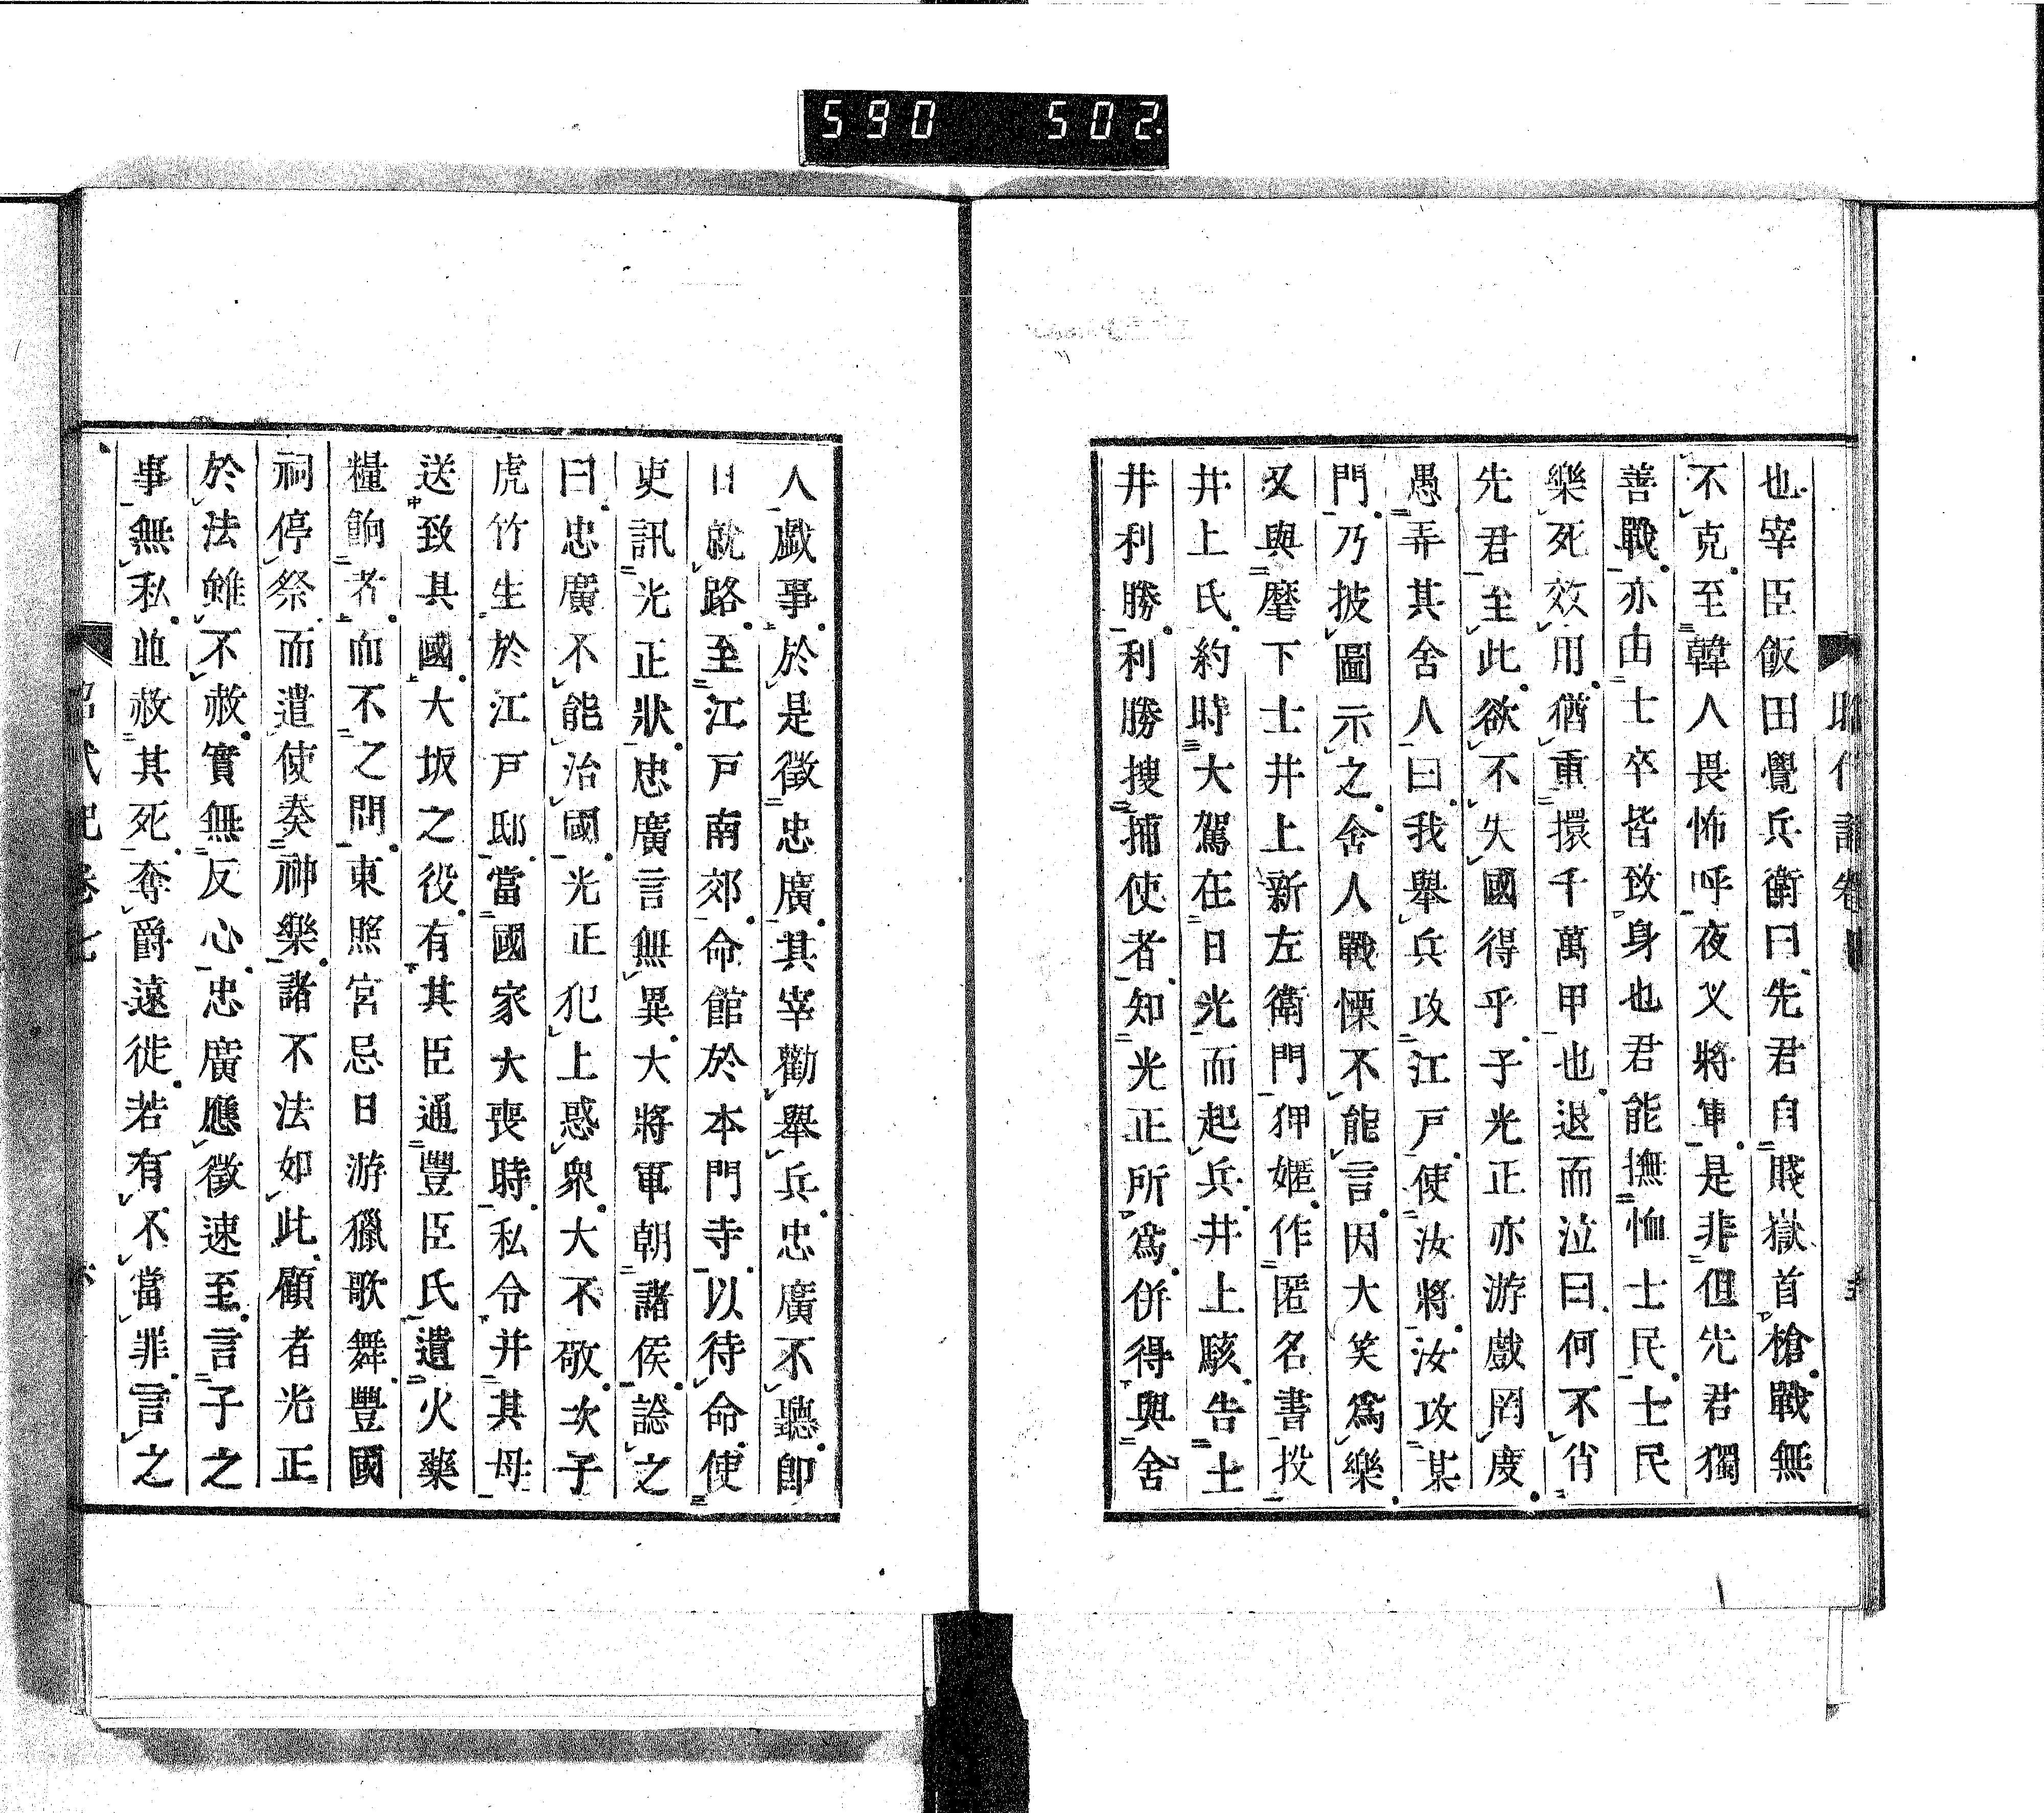 590 502
也宰臣飯田覺兵衛曰先君自賤嶽首槍戰無
不克至韓人畏怖呼夜叉將軍是非但先君獨
善戰亦由士卒皆致身也君能撫恤士民士民
樂死效用猶重擐千萬甲也退而泣曰何不肖
先君至此欲不失國得乎子光正亦游戲罔度
愚弄其舍人曰我舉兵攻江戸使汝將汝攻某
門乃披圖示之舍人戰慄不能言因大笑爲樂
又與麾下士井上新左衛門狎媟作匿名書投
井上氏約時大駕在日光而起兵井上駭告土
井利勝利勝搜捕使者知光正所爲併得與舍
人戲事於是徵忠廣其宰勸舉兵忠廣不聽即
日就路至江戸南郊命館於本門寺以待命使
吏訊光正狀忠廣言無異大將軍朝諸侯諗之
曰忠廣不能治國光正犯上惑衆大不敬次子
虎竹生於江戸邸當國家大喪時私令并其母
送致其國大坂之役有其臣通豐臣氏遺火藥
糧餉者而不之問東照宮忌日游獵歌舞豐國
祠停祭而遣使奏神樂諸不法如此顧者光正
於法雖不赦實無反心忠廣應徵速至言子之
事無私並赦其死奪爵遠徙若有不當罪言之